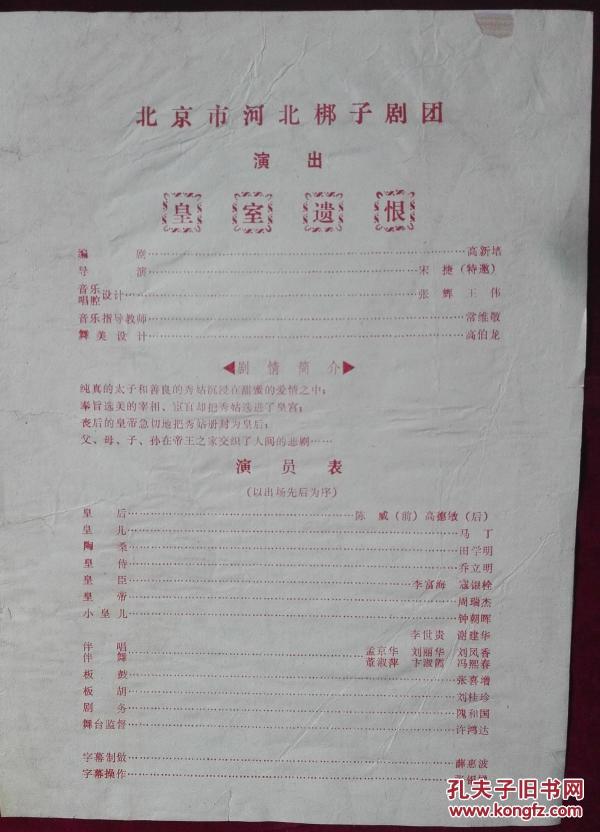 北京市河北梆子剧团
演出
皇室遗恨
编剧……高新培
导演……宋捷(特邀)
音乐唱腔设计……张辉 王伟
音乐指导教师……常维敬
舞美设计……高伯龙
剧情简介
纯真的太子和善良的秀姑沉浸在甜蜜的爱情之中;
奉旨选美的宰相、宦官却把秀姑选进了皇宫;
丧后的皇帝急切地把秀姑册封为皇后;
父、母、子、孙在帝王之家交织了人间的悲剧……
演员表
(以出场先后为序)
皇后……陈威(前)高德敏(后)
皇儿……马丁
陶桑……田学明
皇侍……乔立明
皇臣……李富海 寇银栓
皇帝……周瑞杰
小皇儿……钟朝晖
李世贵 谢建华
伴唱……孟京华 刘丽华 刘凤香
伴舞……董淑萍 卞淑霞 冯熙春
板鼓……张喜增
板胡……刘桂珍
剧务……隗和国
舞台监督……许鸿达
字幕制做……薛惠波
字幕操作……
孔夫子旧书网
www.kongfz.com